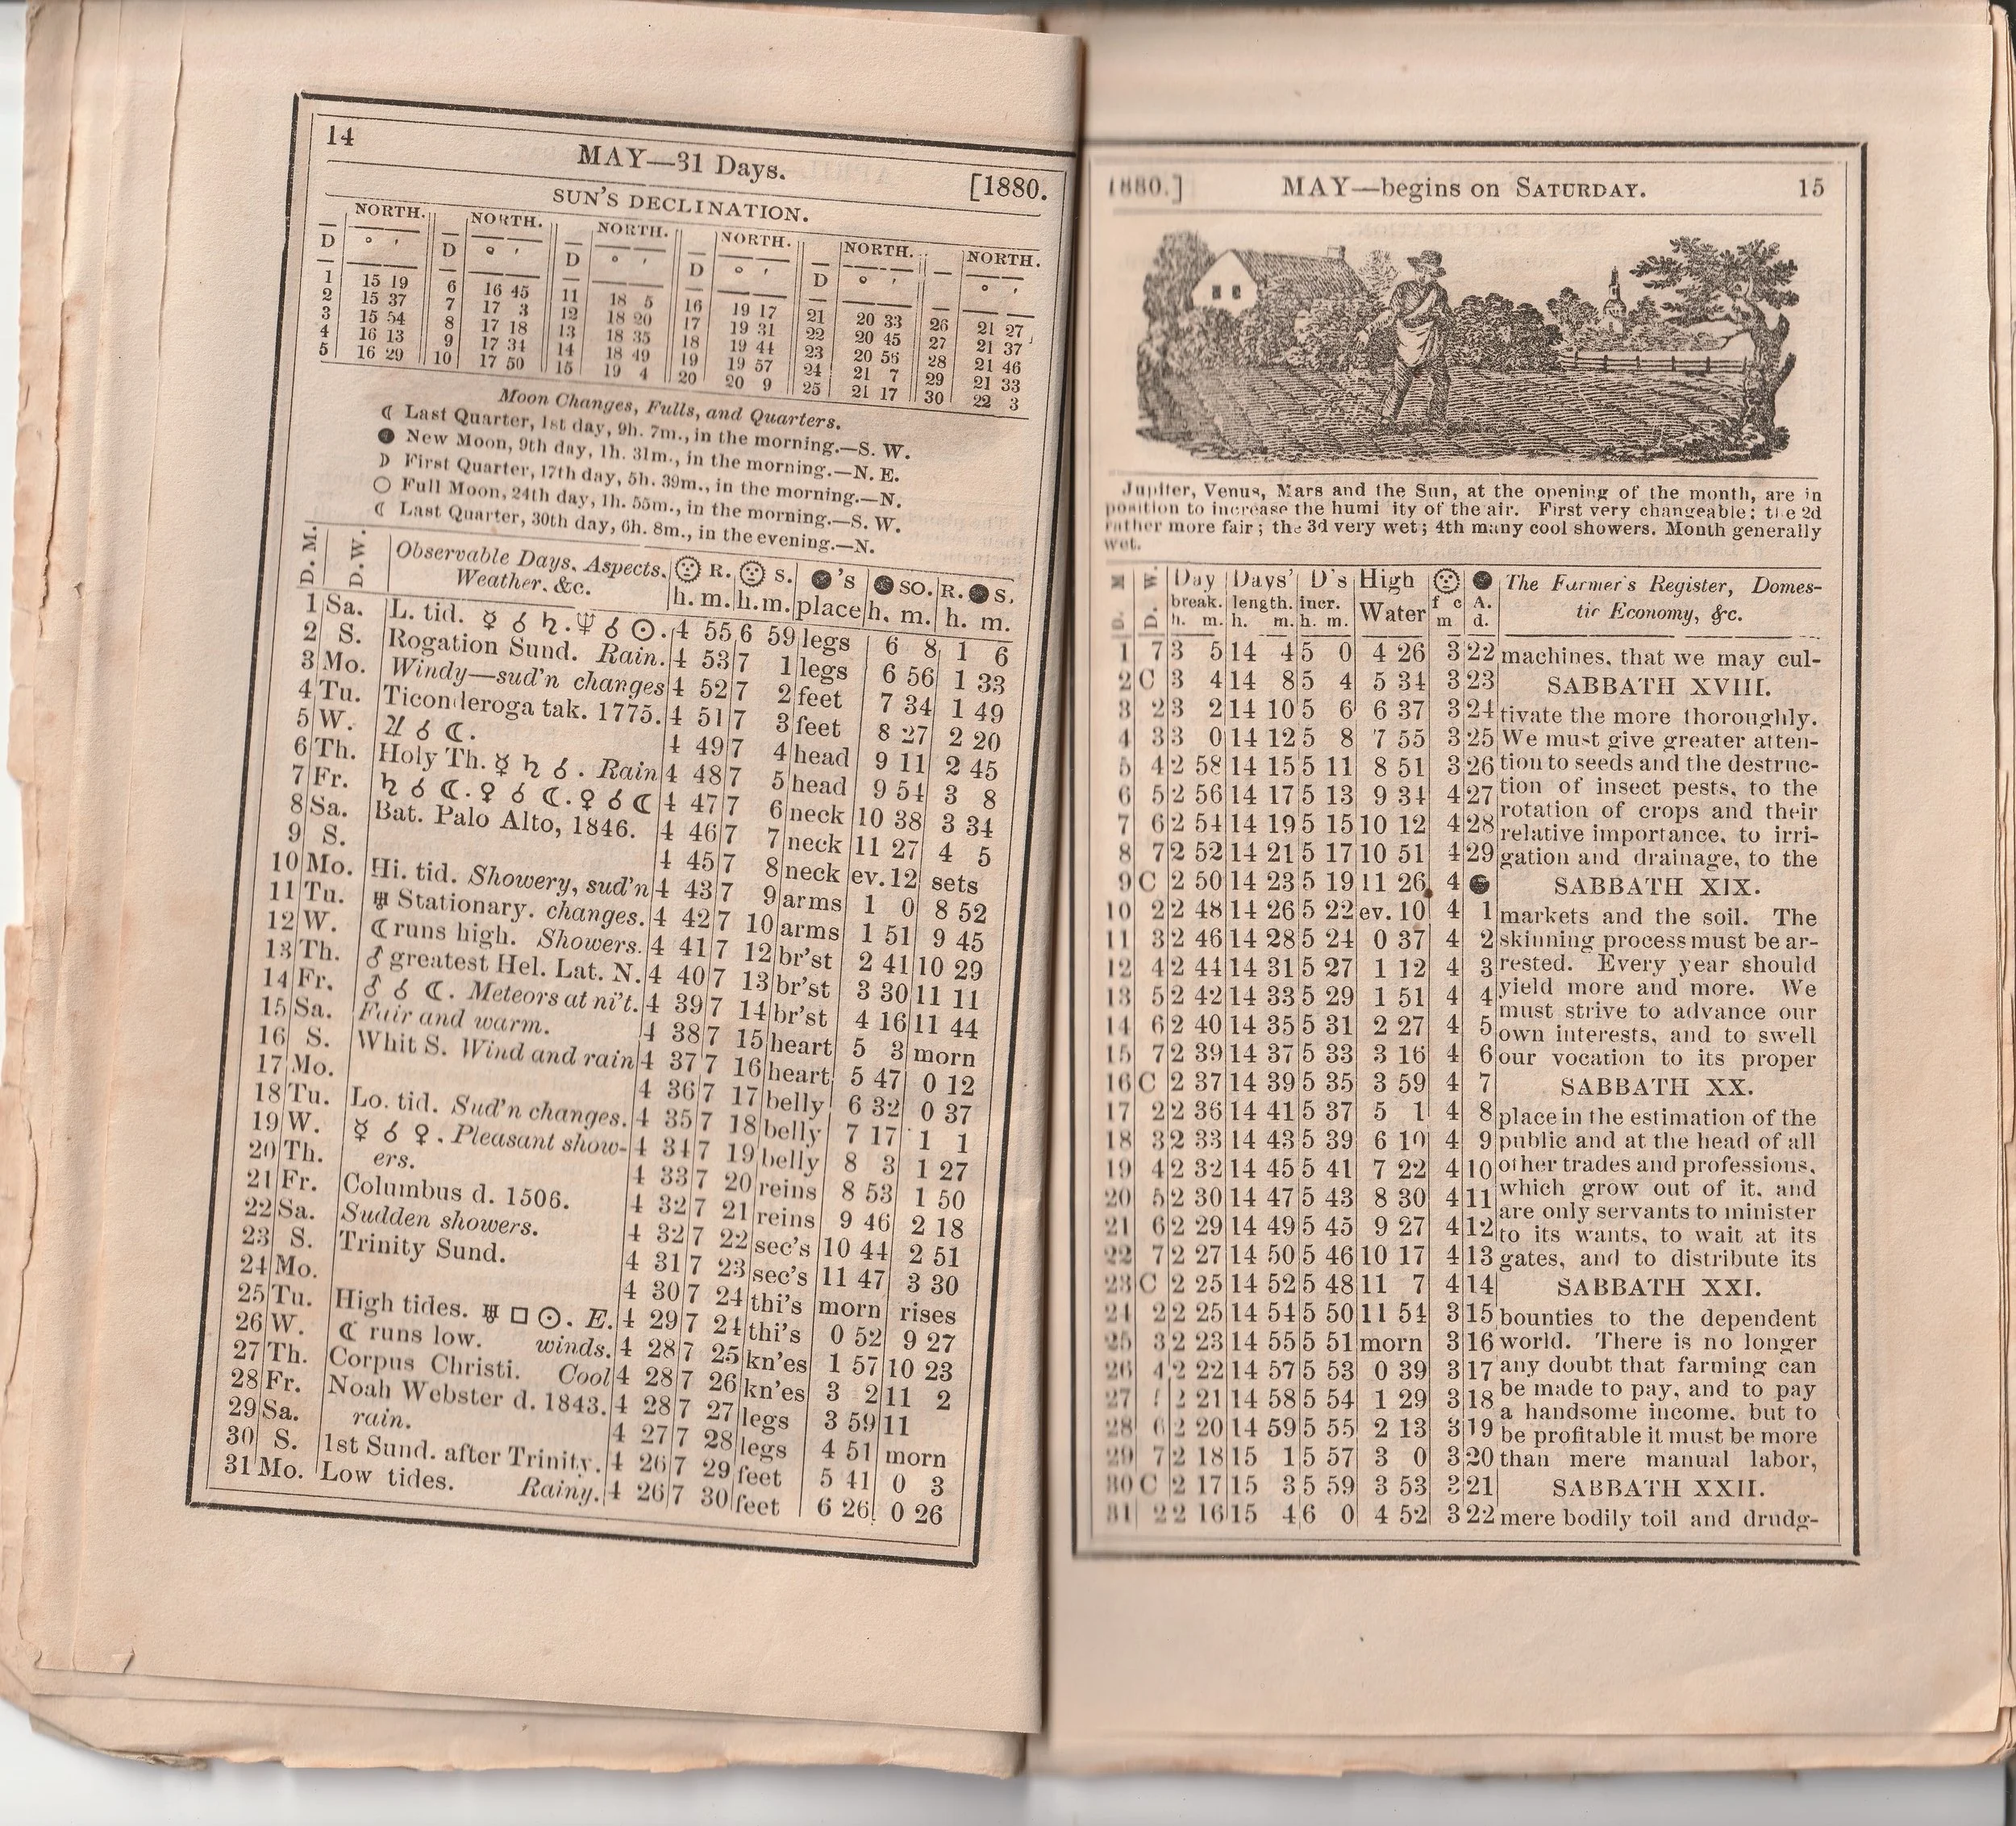 14
MAY—31 Days.
[1880.
SUN'S DECLINATION.
NORTH. NORTH. NORTH. NORTH. NORTH. NORTH.
D ° ' D ° ' D ° ' D ° ' D ° ' ° '
1 15 19 6 16 45 11 18 5 16 19 17 21 20 33 26 21 27
2 15 37 7 17 3 12 18 20 17 19 31 22 20 45 27 21 37
3 15 54 8 17 18 13 18 35 18 19 44 23 20 56 28 21 46
4 16 13 9 17 34 14 18 49 19 19 57 24 21 7 29 21 33
5 16 29 10 17 50 15 19 4 20 20 9 25 21 17 30 22 3
Moon Changes, Fulls, and Quarters.
☾ Last Quarter, 1st day, 9h. 7m., in the morning.—S. W.
● New Moon, 9th day, 1h. 31m., in the morning.—N. E.
☽ First Quarter, 17th day, 5h. 39m., in the morning.—N.
○ Full Moon, 24th day, 1h. 55m., in the morning.—S. W.
☾ Last Quarter, 30th day, 6h. 8m., in the evening.—N.
D. M. D. W. Observable Days, Aspects, Weather, &c. R. h. m. S. h. m. ●'s place ● SO. h. m. R. ● S. h. m.
1 Sa. L. tid. ☿ ☌ ♄. ♆ ☌ ☉. 4 55 6 59 legs 6 8 1 6
2 S. Rogation Sund. Rain. 4 53 7 1 legs 6 56 1 33
3 Mo. Windy—sud'n changes 4 52 7 2 feet 7 34 1 49
4 Tu. Ticonderoga tak. 1775. 4 51 7 3 feet 8 27 2 20
5 W. ♃ ☌ ☾. 4 49 7 4 head 9 11 2 45
6 Th. Holy Th. ☿ ♄ ☌. Rain 4 48 7 5 head 9 54 3 8
7 Fr. ♄ ☌ ☾. ♀ ☌ ☾. ♀ ☌ ☾ 4 47 7 6 neck 10 38 3 34
8 Sa. Bat. Palo Alto, 1846. 4 46 7 7 neck 11 27 4 5
9 S. 4 45 7 8 neck ev. 12 sets
10 Mo. Hi. tid. Showery, sud'n 4 43 7 9 arms 1 0 8 52
11 Tu. ♅ Stationary. changes. 4 42 7 10 arms 1 51 9 45
12 W. ☾ runs high. Showers. 4 41 7 12 br'st 2 41 10 29
13 Th. ♂ greatest Hel. Lat. N. 4 40 7 13 br'st 3 30 11 11
14 Fr. ♂ ☌ ☾. Meteors at ni't. 4 39 7 14 br'st 4 16 11 44
15 Sa. Fair and warm. 4 38 7 15 heart 5 3 morn
16 S. Whit S. Wind and rain 4 37 7 16 heart 5 47 0 12
17 Mo. 4 36 7 17 belly 6 32 0 37
18 Tu. Lo. tid. Sud'n changes. 4 35 7 18 belly 7 17 1 1
19 W. ☿ ☌ ♀. Pleasant show- 4 34 7 19 belly 8 3 1 27
20 Th. ers. 4 33 7 20 reins 8 53 1 50
21 Fr. Columbus d. 1506. 4 32 7 21 reins 9 46 2 18
22 Sa. Sudden showers. 4 32 7 22 sec's 10 44 2 51
23 S. Trinity Sund. 4 31 7 23 sec's 11 47 3 30
24 Mo. 4 30 7 24 thi's morn rises
25 Tu. High tides. ♅ □ ☉. E. 4 29 7 24 thi's 0 52 9 27
26 W. ☾ runs low. winds. 4 28 7 25 kn'es 1 57 10 23
27 Th. Corpus Christi. Cool 4 28 7 26 kn'es 3 2 11 2
28 Fr. Noah Webster d. 1843. 4 28 7 27 legs 3 59 11
29 Sa. rain. 4 27 7 28 legs 4 51 morn
30 S. 1st Sund. after Trinity. 4 26 7 29 feet 5 41 0 3
31 Mo. Low tides. Rainy. 4 26 7 30 feet 6 26 0 26
1880.]
MAY—begins on SATURDAY.
15
Jupiter, Venus, Mars and the Sun, at the opening of the month, are in
position to increase the humi ity of the air. First very changeable; the 2d
rather more fair; the 3d very wet; 4th many cool showers. Month generally
wet.
D. M D. W. Day break. h. m. Days' length. h. m. D's incr. h. m. High Water f c m A. d. The Farmer's Register, Domes-
tic Economy, &c.
1 7 3 5 14 4 5 0 4 26 3 22 machines, that we may cul-
2 C 3 4 14 8 5 4 5 34 3 23 SABBATH XVIII.
3 2 3 2 14 10 5 6 6 37 3 24 tivate the more thoroughly.
4 3 3 0 14 12 5 8 7 55 3 25 We must give greater atten-
5 4 2 58 14 15 5 11 8 51 3 26 tion to seeds and the destruc-
6 5 2 56 14 17 5 13 9 34 4 27 tion of insect pests, to the
rotation of crops and their
7 6 2 54 14 19 5 15 10 12 4 28 relative importance, to irri-
8 7 2 52 14 21 5 17 10 51 4 29 gation and drainage, to the
9 C 2 50 14 23 5 19 11 26 4 ● SABBATH XIX.
10 2 2 48 14 26 5 22 ev. 10 4 1 markets and the soil. The
11 3 2 46 14 28 5 24 0 37 4 2 skinning process must be ar-
12 4 2 44 14 31 5 27 1 12 4 3 rested. Every year should
13 5 2 42 14 33 5 29 1 51 4 4 yield more and more. We
must strive to advance our
14 6 2 40 14 35 5 31 2 27 4 5 own interests, and to swell
15 7 2 39 14 37 5 33 3 16 4 6 our vocation to its proper
16 C 2 37 14 39 5 35 3 59 4 7 SABBATH XX.
17 2 2 36 14 41 5 37 5 1 4 8 place in the estimation of the
18 3 2 33 14 43 5 39 6 10 4 9 public and at the head of all
19 4 2 32 14 45 5 41 7 22 4 10 other trades and professions,
20 5 2 30 14 47 5 43 8 30 4 11 which grow out of it, and
are only servants to minister
21 6 2 29 14 49 5 45 9 27 4 12 to its wants, to wait at its
22 7 2 27 14 50 5 46 10 17 4 13 gates, and to distribute its
23 C 2 25 14 52 5 48 11 7 4 14 SABBATH XXI.
24 2 2 25 14 54 5 50 11 54 3 15 bounties to the dependent
25 3 2 23 14 55 5 51 morn 3 16 world. There is no longer
26 4 2 22 14 57 5 53 0 39 3 17 any doubt that farming can
27 2 21 14 58 5 54 1 29 3 18 be made to pay, and to pay
a handsome income, but to
28 6 2 20 14 59 5 55 2 13 3 19 be profitable it must be more
29 7 2 18 15 1 5 57 3 0 3 20 than mere manual labor,
30 C 2 17 15 3 5 59 3 53 3 21 SABBATH XXII.
31 2 2 16 15 4 6 0 4 52 3 22 mere bodily toil and drudg-